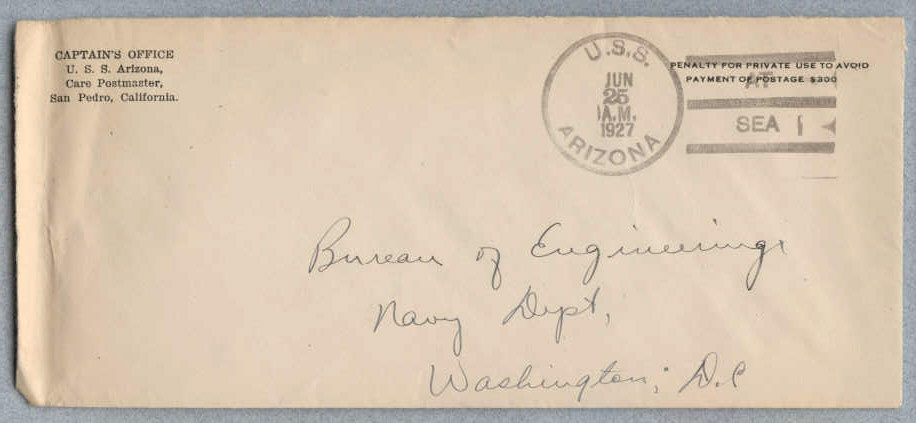 CAPTAIN'S OFFICE
U. S. S. Arizona,
Care Postmaster,
San Pedro, California.
U.S.S.
JUN
25
A.M.
1927
ARIZONA
PENALTY FOR PRIVATE USE TO AVOID
PAYMENT OF POSTAGE $300
AT
SEA
Bureau of Engineering
Navy Dept,
Washington, D.C